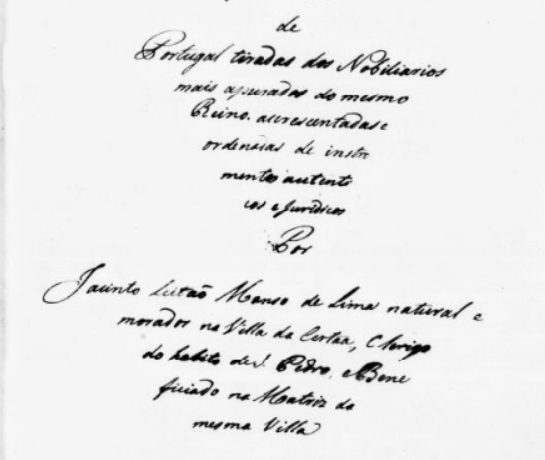 de
Portugal tiradas dos Nobiliarios
mais apurados do mesmo
Reino. acrescentadas e
ordenadas de instru
mentos autenti
cos e Juridicos
Por
Jacinto Leitão Manso de Lima natural e
morador na Villa da Certaã, Clerigo
do habito de S. Pedro, e Bene
ficiado na Matriz da
mesma Villa